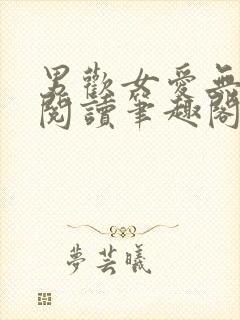 男歡女愛無
閱讀筆趣閣
夢芸曦